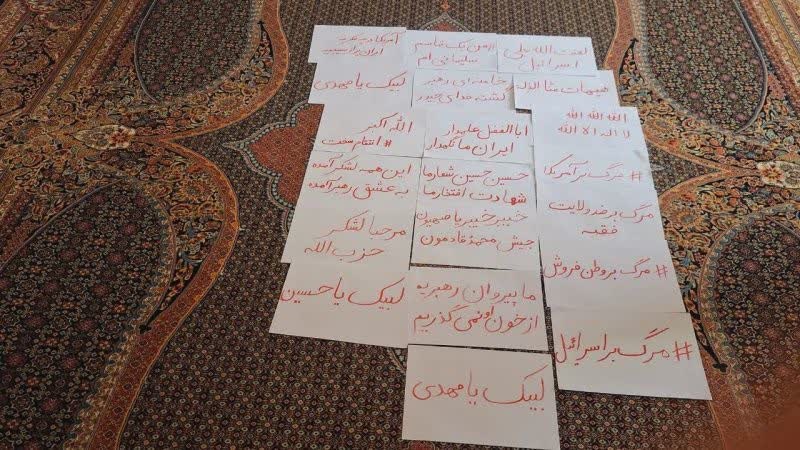 لعنت الله علی
اسرائیل
هیهات منا الذله
الله الله الله
لا اله الا الله
# مرگ بر آمریکا
مرگ بر ضد ولایت
فقیه
# مرگ بر وطن فروش
# مرگ بر اسرائیل
#من یک قاسم
سلیمانی ام
خامنه ای رهبر
گشته فدای حیدر
ابالفضل علمدار
ایران ما نگهدار
حسین حسین شعار ما
شهادت افتخار ما
خیبر خیبر یا صهیون
جیش محمد قادمون
ما پیروان رهبریه
از خون او نمی گذریم
لبیک یا مهدی
آمریکا
ایران را
لبیک یا مهدی
الله اکبر
# انتقام سخت
این همه لشکر آمده
به عشق رهبر آمده
مرحبا لشکر
حزب الله
لبیک یا حسین